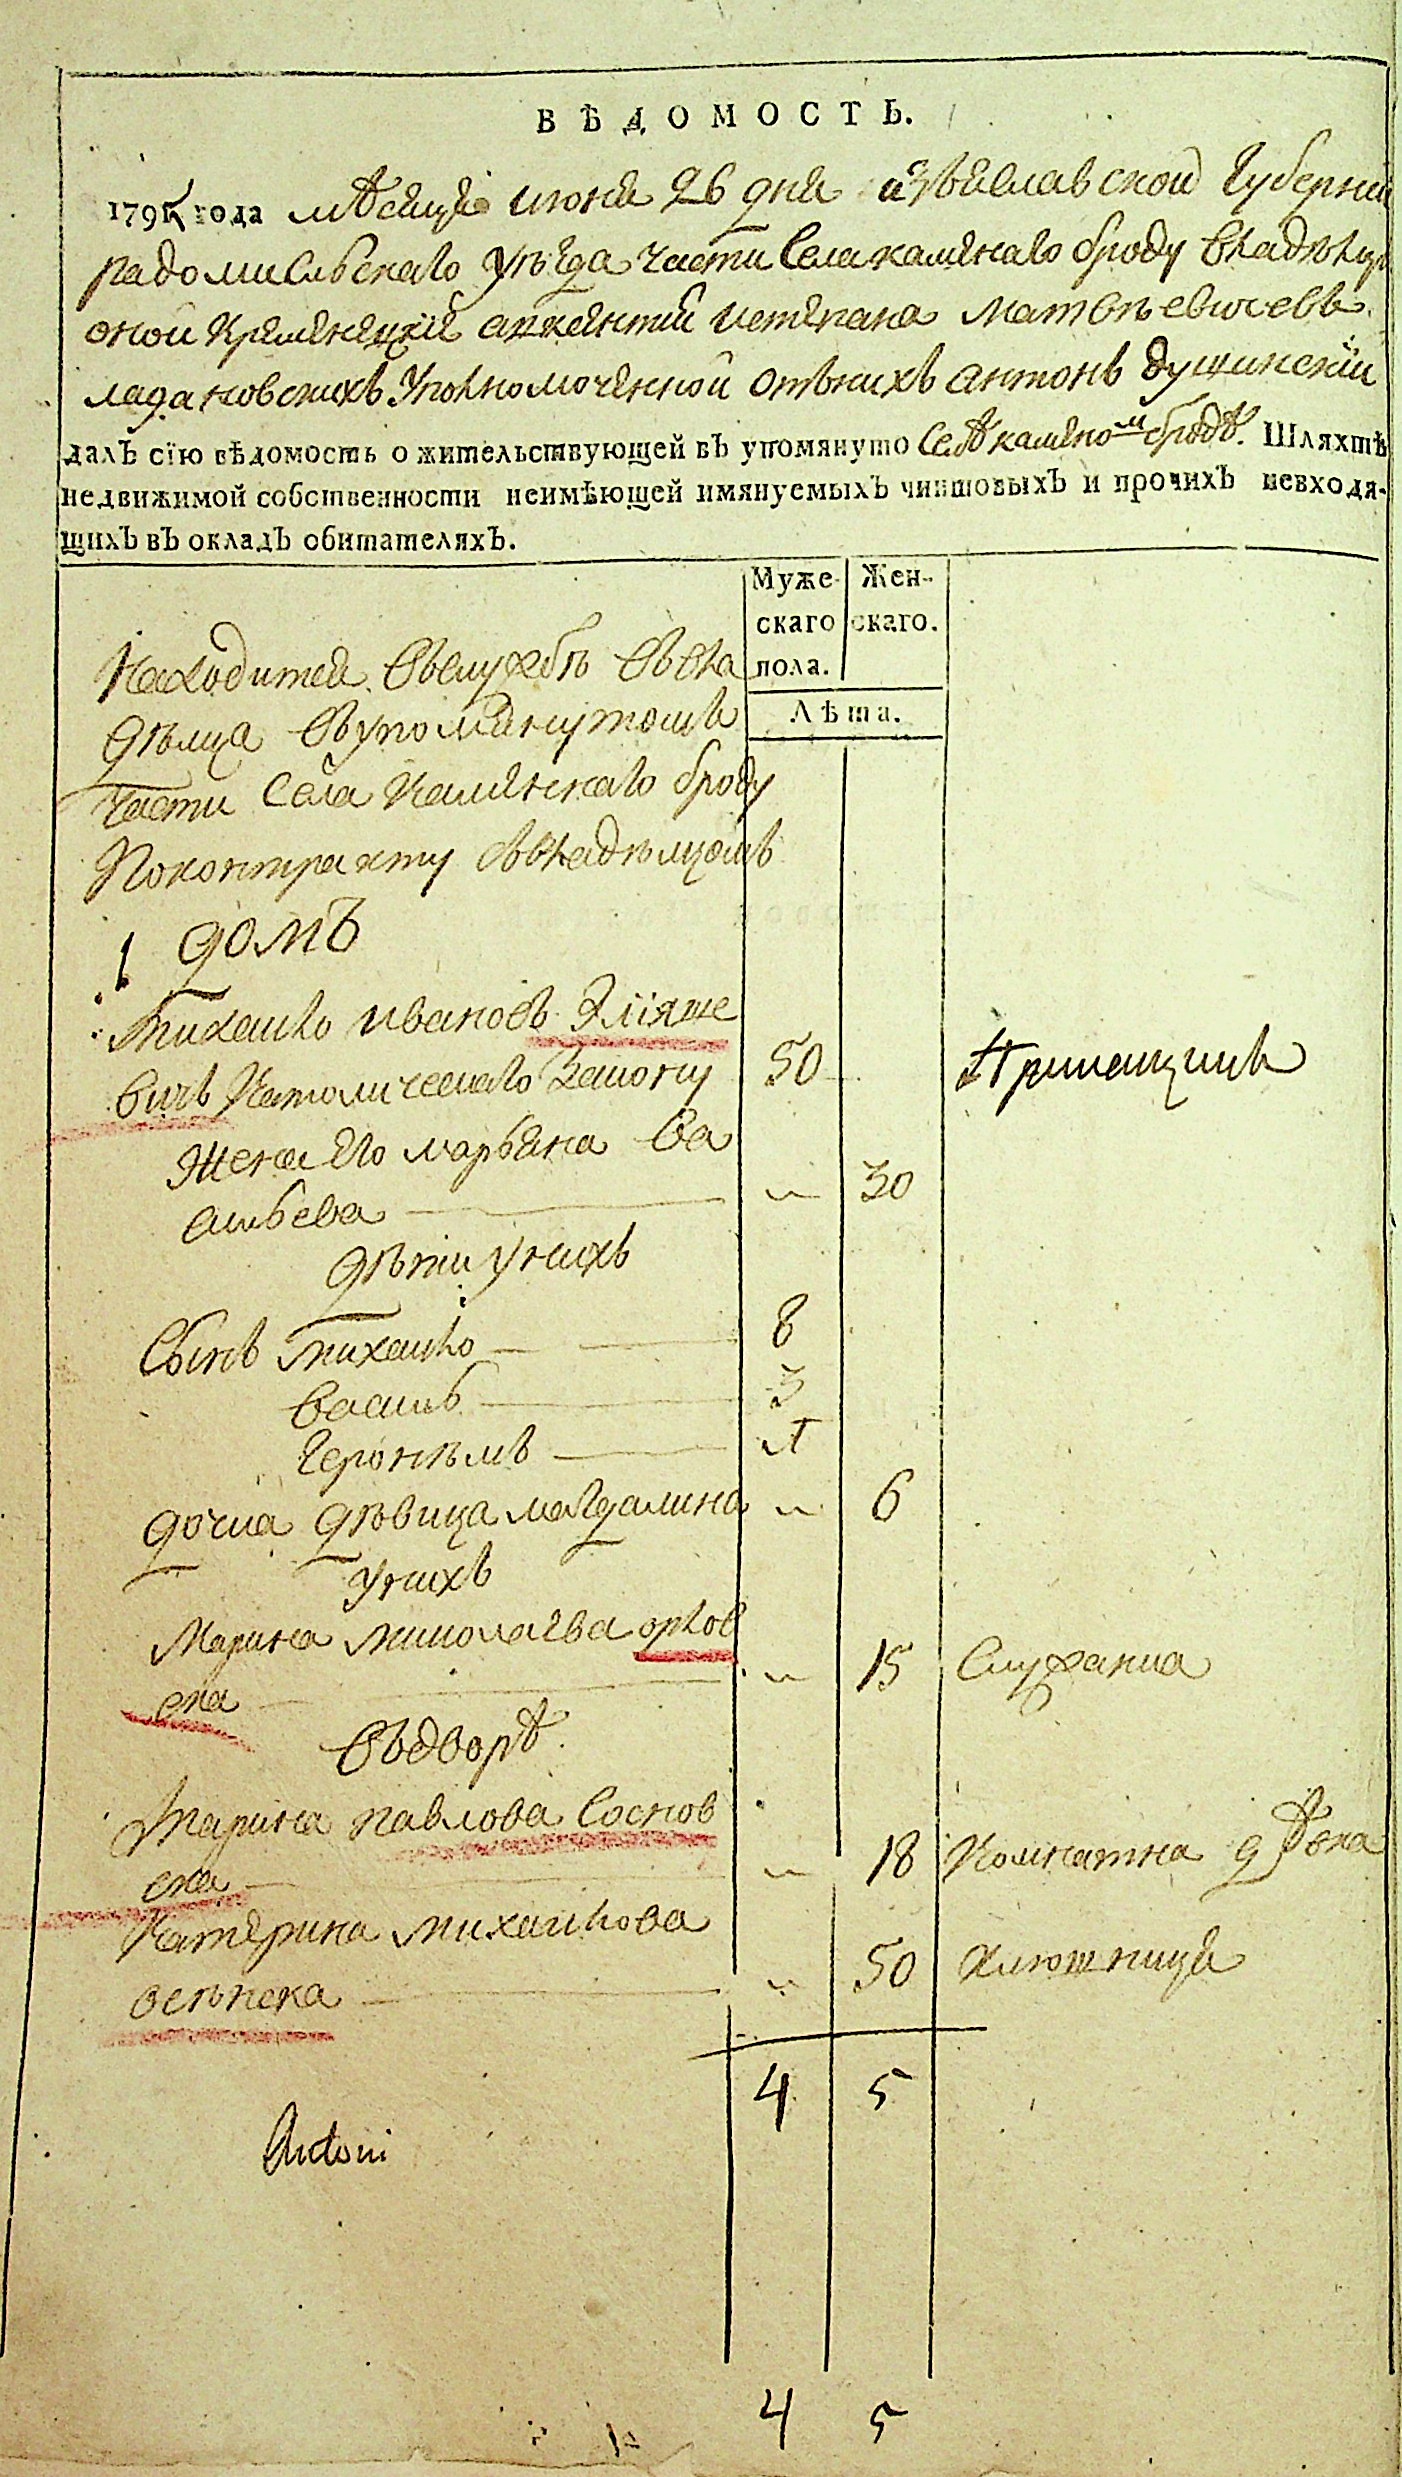 ВѢДОМОСТЬ.
1795 года мѣсяца июня 26 дня изъяславской губернии
радомисльскаго уѣзда части села камянаго броду владѣлцы
оной кремянецкие истяпана матвѣевичевъ
ладановскихъ уполномоченной отънихъ антонъ душинский
далъ сїю вѣдомость о жительствующей въ упомянуто селѣ камяномъ бродѣ. Шляхтѣ
недвижимой собственности неимѣющей имянуемыхъ чиншовыхъ и прочихъ невходя-
щихъ въ окладъ обитателяхъ.
Муже- Жен-
скаго скаго.
пола.
Лѣта.
Находится вслужбѣ ввла
дѣлца въупомянутомъ
части села камянскаго броду
поконтракту ввладѣлцомъ
1 домъ
михайло ивановъ Элїяше
вичъ католическаго закону 50 Прикащикъ
жена его марьяна ва
сильева 30
дѣти унихъ
Сынъ михайло 8
василь 3
Геронѣмъ
дочка дѣвица магдалина 6
унихъ
Марина миколаева орлов
ска 15 Служанка
въдворѣ
Марина павлова Соснов
ска 18 комнатна дѣвка
Катерина михайлова
50 ключница
4 5
Antoni
4 5